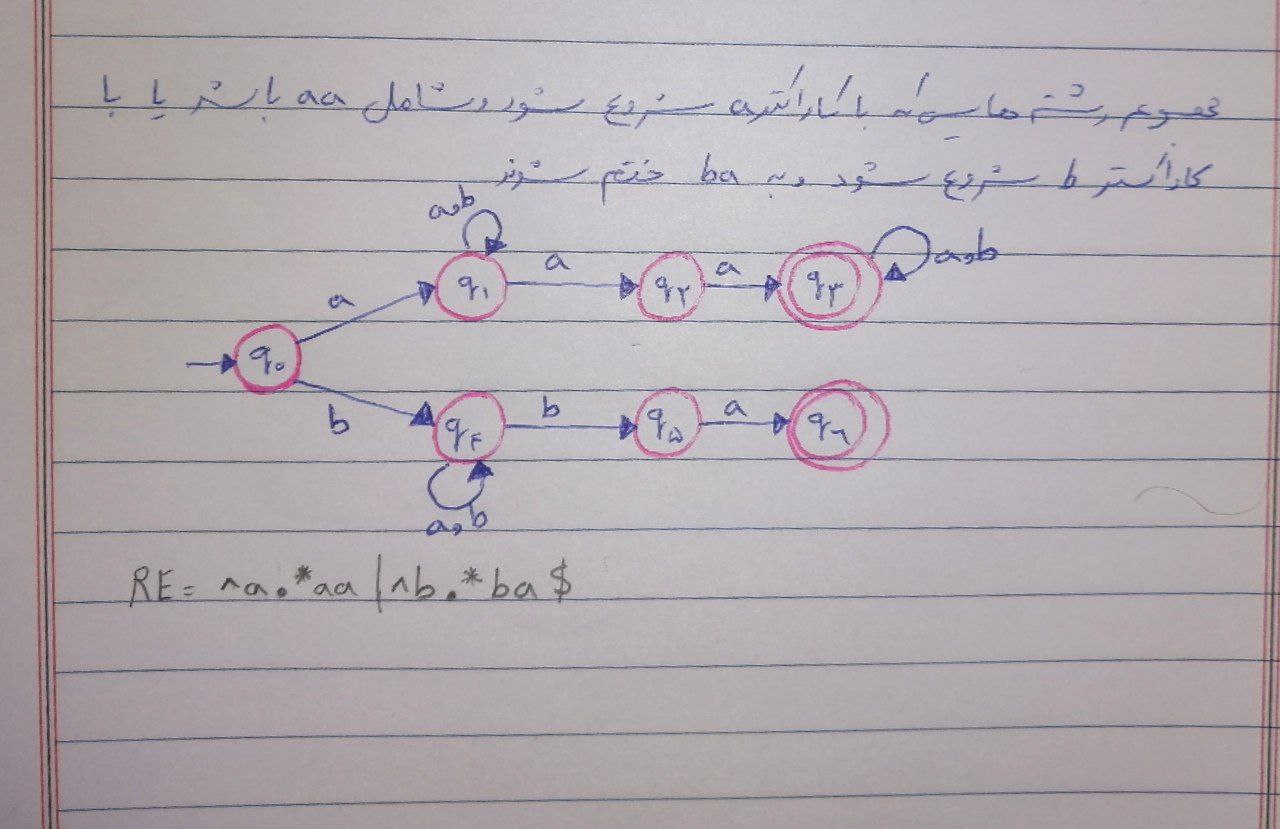 مجموعه رشته هایی که با کاراکتر a شروع شود و شامل aa باشد یا با
کاراکتر b شروع شود و به ba ختم شوند
a,b
a a a a,b
q۱ q۲ q۳
q۰
b b a
q۴ q۵ q۶
a,b
RE= ^a.*aa|^b.*ba$